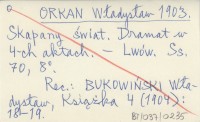 ORKAN Władysław 1903.
Skąpany świat. Dramat w
4-ch aktach. – Lwów. Ss.
70, 8°.
Rec.: BUKOWIŃSKI Wła-
dysław, Książka 4 (1904):
18-19.